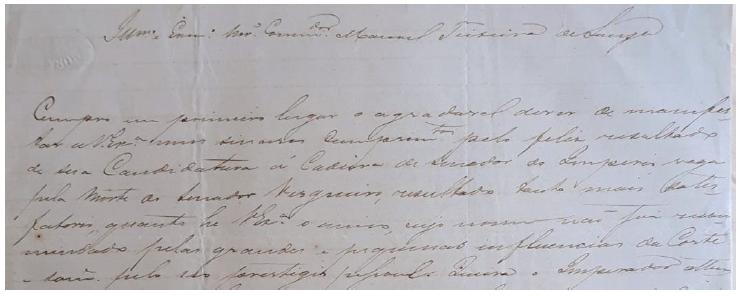 Illmo. e Exmo. Snr. Commdor. Manoel Teixeira de Souza
Cumpro em primeiro lugar o agradavel dever de manifes-
tar a V. Exa. meus sinceros cumprimtos. pelo feliz resultado
de sua Candidatura á Cadeira de Senador do Imperio vaga
pela morte do Senador Vergueiro, resultado tanto mais satis
fatorio, quanto he V. Exa. o unico, cujo nome não foi recom
mendado pelas grandes e pequenas influencias da Corte
pelo seo prestigio o Imperador